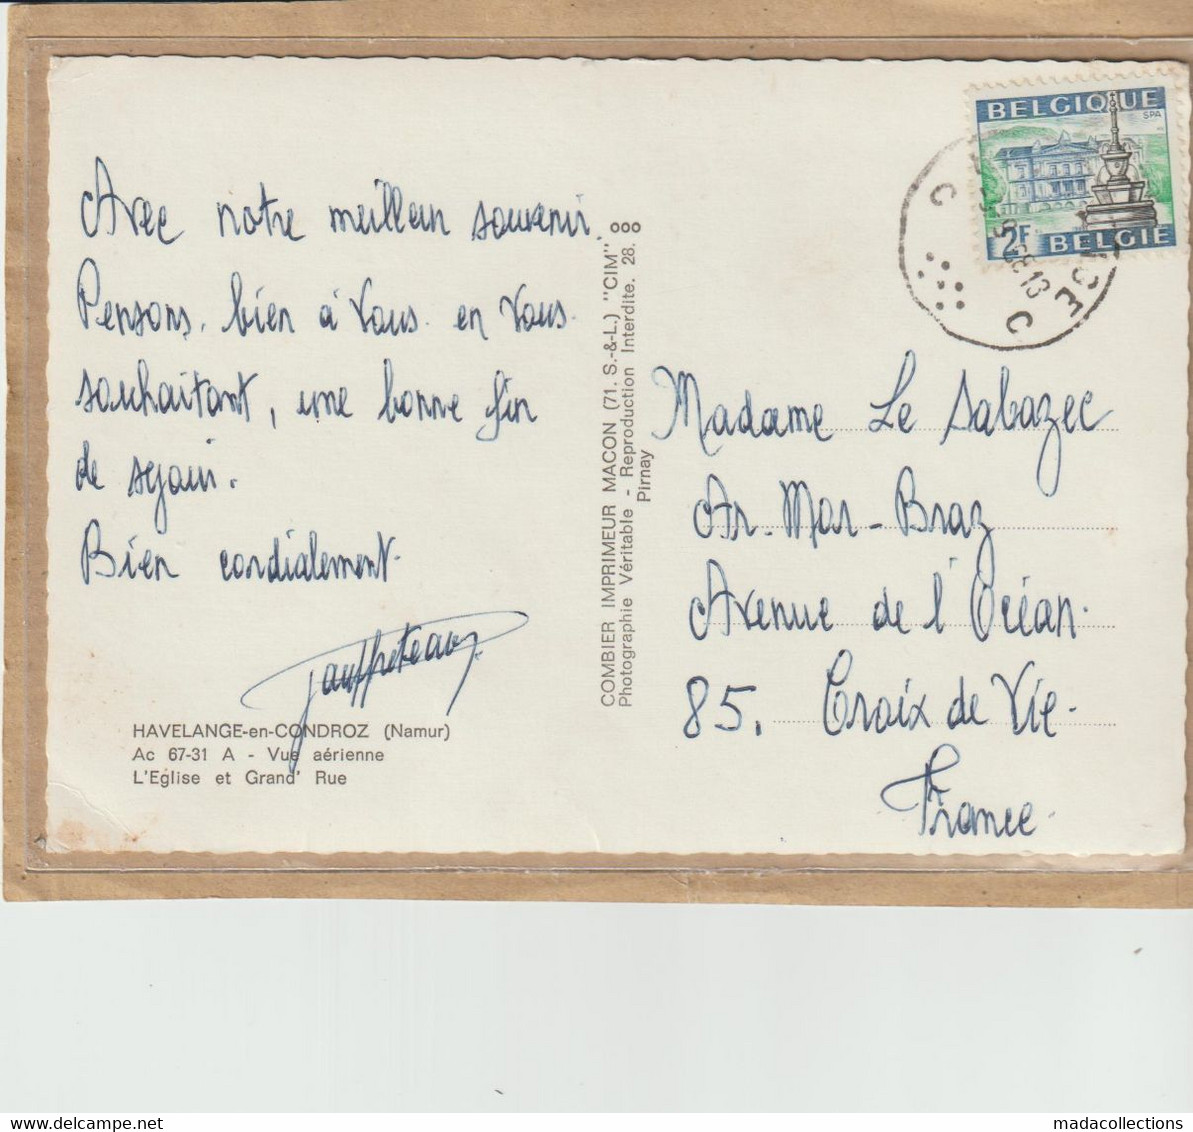 Avec notre meilleur souvenir.
Pensons, bien à Vous en Vous
souhaitant, une bonne fin
de séjour.
Bien cordialement
HAVELANGE-en-CONDROZ (Namur)
Ac 67-31 A - Vue aérienne
L'Eglise et Grand' Rue
COMBIER IMPRIMEUR MACON (71. S.-&-L.) "CIM"
Photographie Véritable - Reproduction Interdite. 28.
Pirnay
BELGIQUE
SPA
2F
BELGIE
Madame Le Sabazec
Ar. Mor-Braz
Avenue de l'Océan.
85. Croix de Vie.
France.
madacollections